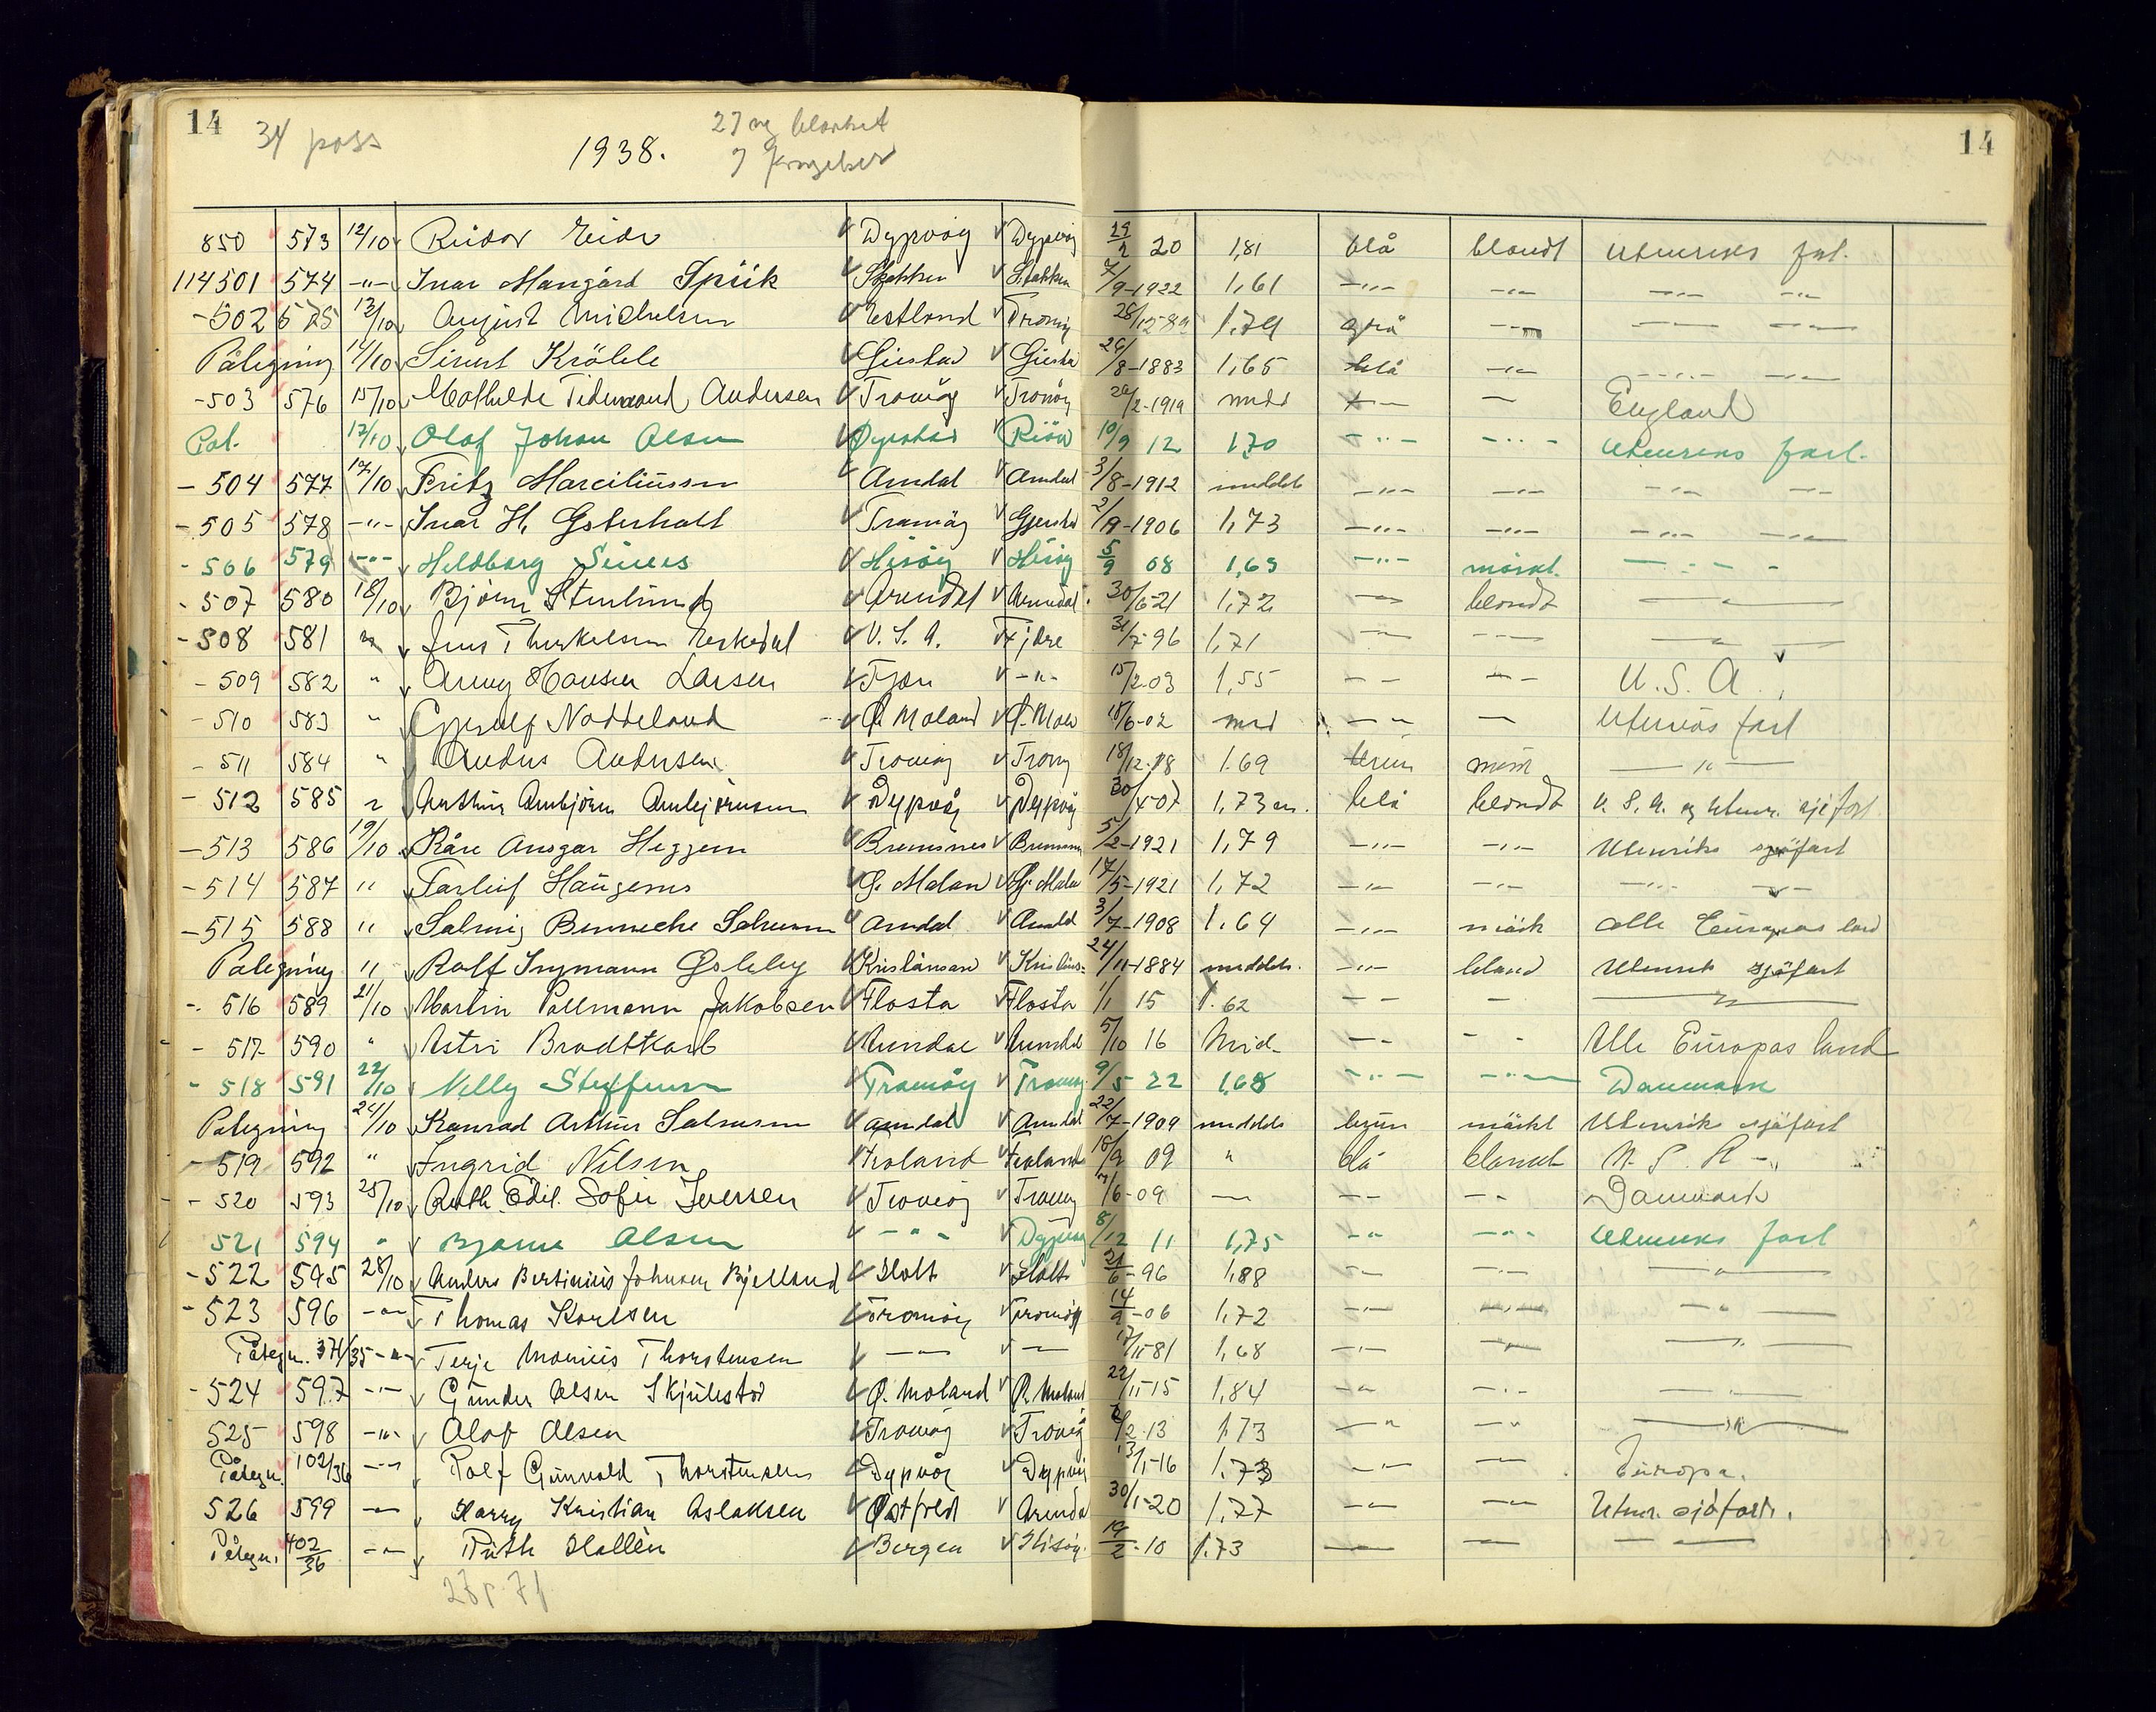 14 34 pass 1938. 27 ny blanket 14
7 fornyelser
850 573 12/10 Reidar Eide Dypvåg Dypvåg 29/2 20 1,81 blå blondt utenriks fart.
114501 574 -"- Ivar Stakken Stakken 7/9-1922 1,61 -"- -"- -"- -"-
-502 575 13/10 August Michelsen Estland Tromøy 28/12-89 1.74 grå -"- -"- -"-
Påtegning 14/10 Gjerstad Gjerstad 26/8-1883 1,65 blå -"- -"- -"-
-503 576 15/10 Mathilde Tidemand Andersen Tromøy Tromøy 1919 midd -"- - England
Pat. 17/10 Olaf Johan Olsen Risør 10/9 12 1,70 -"- -"- utenriks fart.
-504 577 17/10 Fritz Marciliussen Arndal Arndal 3/8-1912 middels -"- -"- -"- -"-
-505 578 -"- Ivar H. Østerholt Tromöy Gjerstd 2/9-1906 1,73 -"- -"- -"- -"-
-506 579 -"- Hildborg Hisøy Hisøy 5/9 08 1,65 -"- mørkt. -"-
-507 580 18/10 Bjørn Stenlund Arendal Arendal 30/6-21 1,72 -"- blondt -"-
-508 581 " Jens Therkelsen Eskedal U.S.A. Fjære 31/7-96 1,71 -"- -"- -"-
-509 582 " Anny Hansen Larsen Fjære -"- 15/2.03 1,55 -"- -"- U.S.A.
-510 583 " Gjerulf Noddeland Ø. Moland Ø. Mold 18/6-02 mid -"- - Utenriks fart
-511 584 " Anders Andersen Tromøy Tromøy 18/12.18 1.69 brun mørk -"-
-512 585 " Arthur Arnbjörn Arnbjörnsen Dypvåg Dypvåg 30/4-07 1,73 cm. blå blondt U.S.A. og utenr. sjøfart
-513 586 19/10 Kåre Ansgar Heggem Bremsnes Bremsnes 5/2-1921 1,79 -"- -"- Utenriks sjøfart
-514 587 " Tarleif Haugenes Ø. Moland Ø. Mola 17/5-1921 1,72 -"- -"- -"- -"-
-515 588 " Solveig Benneche Salvesen Arndal Arndal 3/7-1908 1.64 -"- mörk Alle Europas land
Påtegning " Rolf Ingmann Østeby Kristiansand Kristians- 24/11-1884 middels. -"- blond Utenriks sjøfart
-. 516 589 21/10 Martin Pallmann Jakobsen Flosta Flosta 1/1 15 1.62 -"- - -"-
- 517 590 " Astri Brodtkorb Arendal Arendal 5/10 16 Mid- -"- -"- Alle Europas land
- 518 591 22/10 Nelly Steffensen Tromøy Tromøy 9/5 22 1,68 -"- -"- Danmark
Påtegning 24/10 Konrad Arthur Salvesen Arndal Arndal 22/7-1909 middels brun mörkt Utenriks sjøfart
- 519 592 " Ingrid Nilsen Froland Froland 18/9 09 " blå blondt U.S.A-"
- 520 593 25/10 Ruth Edel. Sofie Iversen Tromøy Tromøy 7/6-09 -"- -"- -"- Danmark
521 594 " Bjarne Olsen -"- Dypvåg 8/12 11 1,75 -"- -"- utenriks fart
-522 595 28/10 Anders Bertinius Johnsen Bjelland Holt Holt 21/6-96 1,88 -"- -"- -"-
-523 596 -"- Thomas Karlsen Tromöy Tromöy 14/9-06 1,72 -"- -"- -"-
Påtegn. 374/35 -"- Terje Monius Thorstensen -"- -"- 17/11-81 1,68 -"- -"- -"-
-524 597 -"- Gunder Olsen Skjulestad Ø. Moland Ø. Moland 22/11-15 1,84 -"- -"- -"-
525 598 -"- Olaf Olsen Tromøy Tromøy 2.13 1.73 -"- -"- -"-
Påtegn. 102/36 -"- Rolf Gunvald Thorstensen Dypvåg Dypvåg 13/1-16 1.73 -"- -"- Europa.
526 599 -"- Harry Kristian Aslaksen Østfold Arendal 30/1-20 1,77 -"- -"- Utenr. sjøfart.
Påtegn. 402/36 -"- Ruth Hallèn Bergen Hisøy. 19/2-10 1.73 -"- -"- -"-
27 p. 7 f